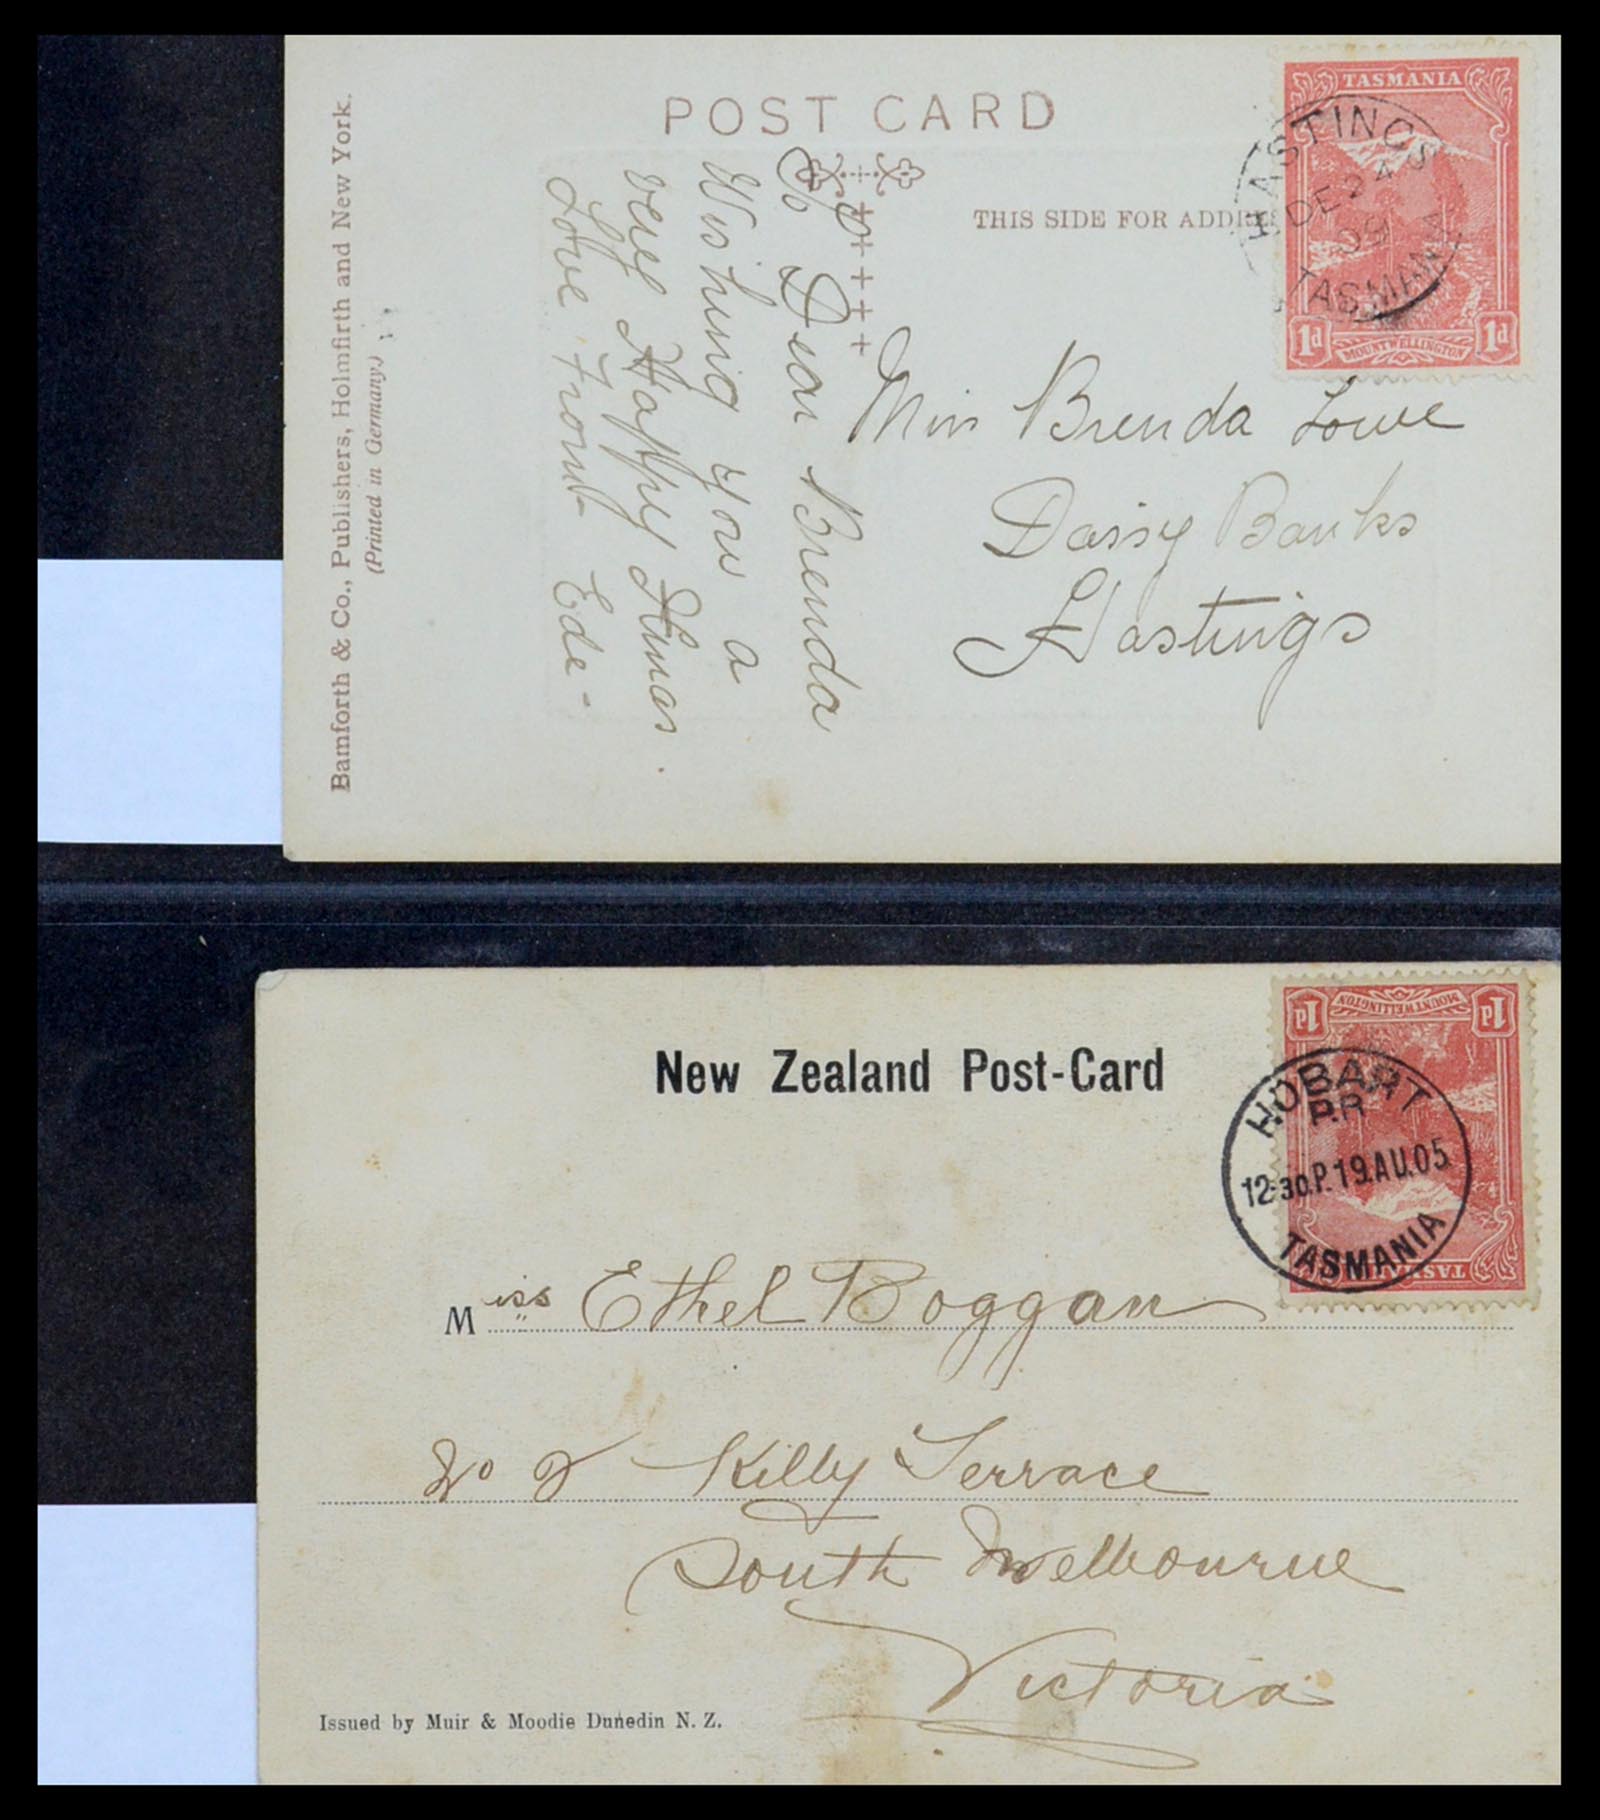 POST CARD
THIS SIDE FOR ADDRE
TASMANIA
1d MOUNT WELLINGTON 1d
HASTINGS
DE 24
09
TASMANIA
Bamforth & Co., Publishers, Holmfirth and New York.
(Printed in Germany.)
To Dear Brenda
Wishing you a
very Happy Xmas.
Love From Ede -
Miss Brenda Lowe
Daisy Banks
Hastings
New Zealand Post-Card
1d MOUNT WELLINGTON 1d
TASMANIA
HOBART
P.R
12·30.P.19.AU.05
TASMANIA
Miss Ethel Boggan
No 2 Killy Terrace
South Melbourne
Victoria
Issued by Muir & Moodie Dunedin N. Z.